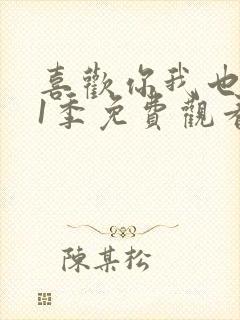 喜歡你我也
1季免費觀看
陳某松